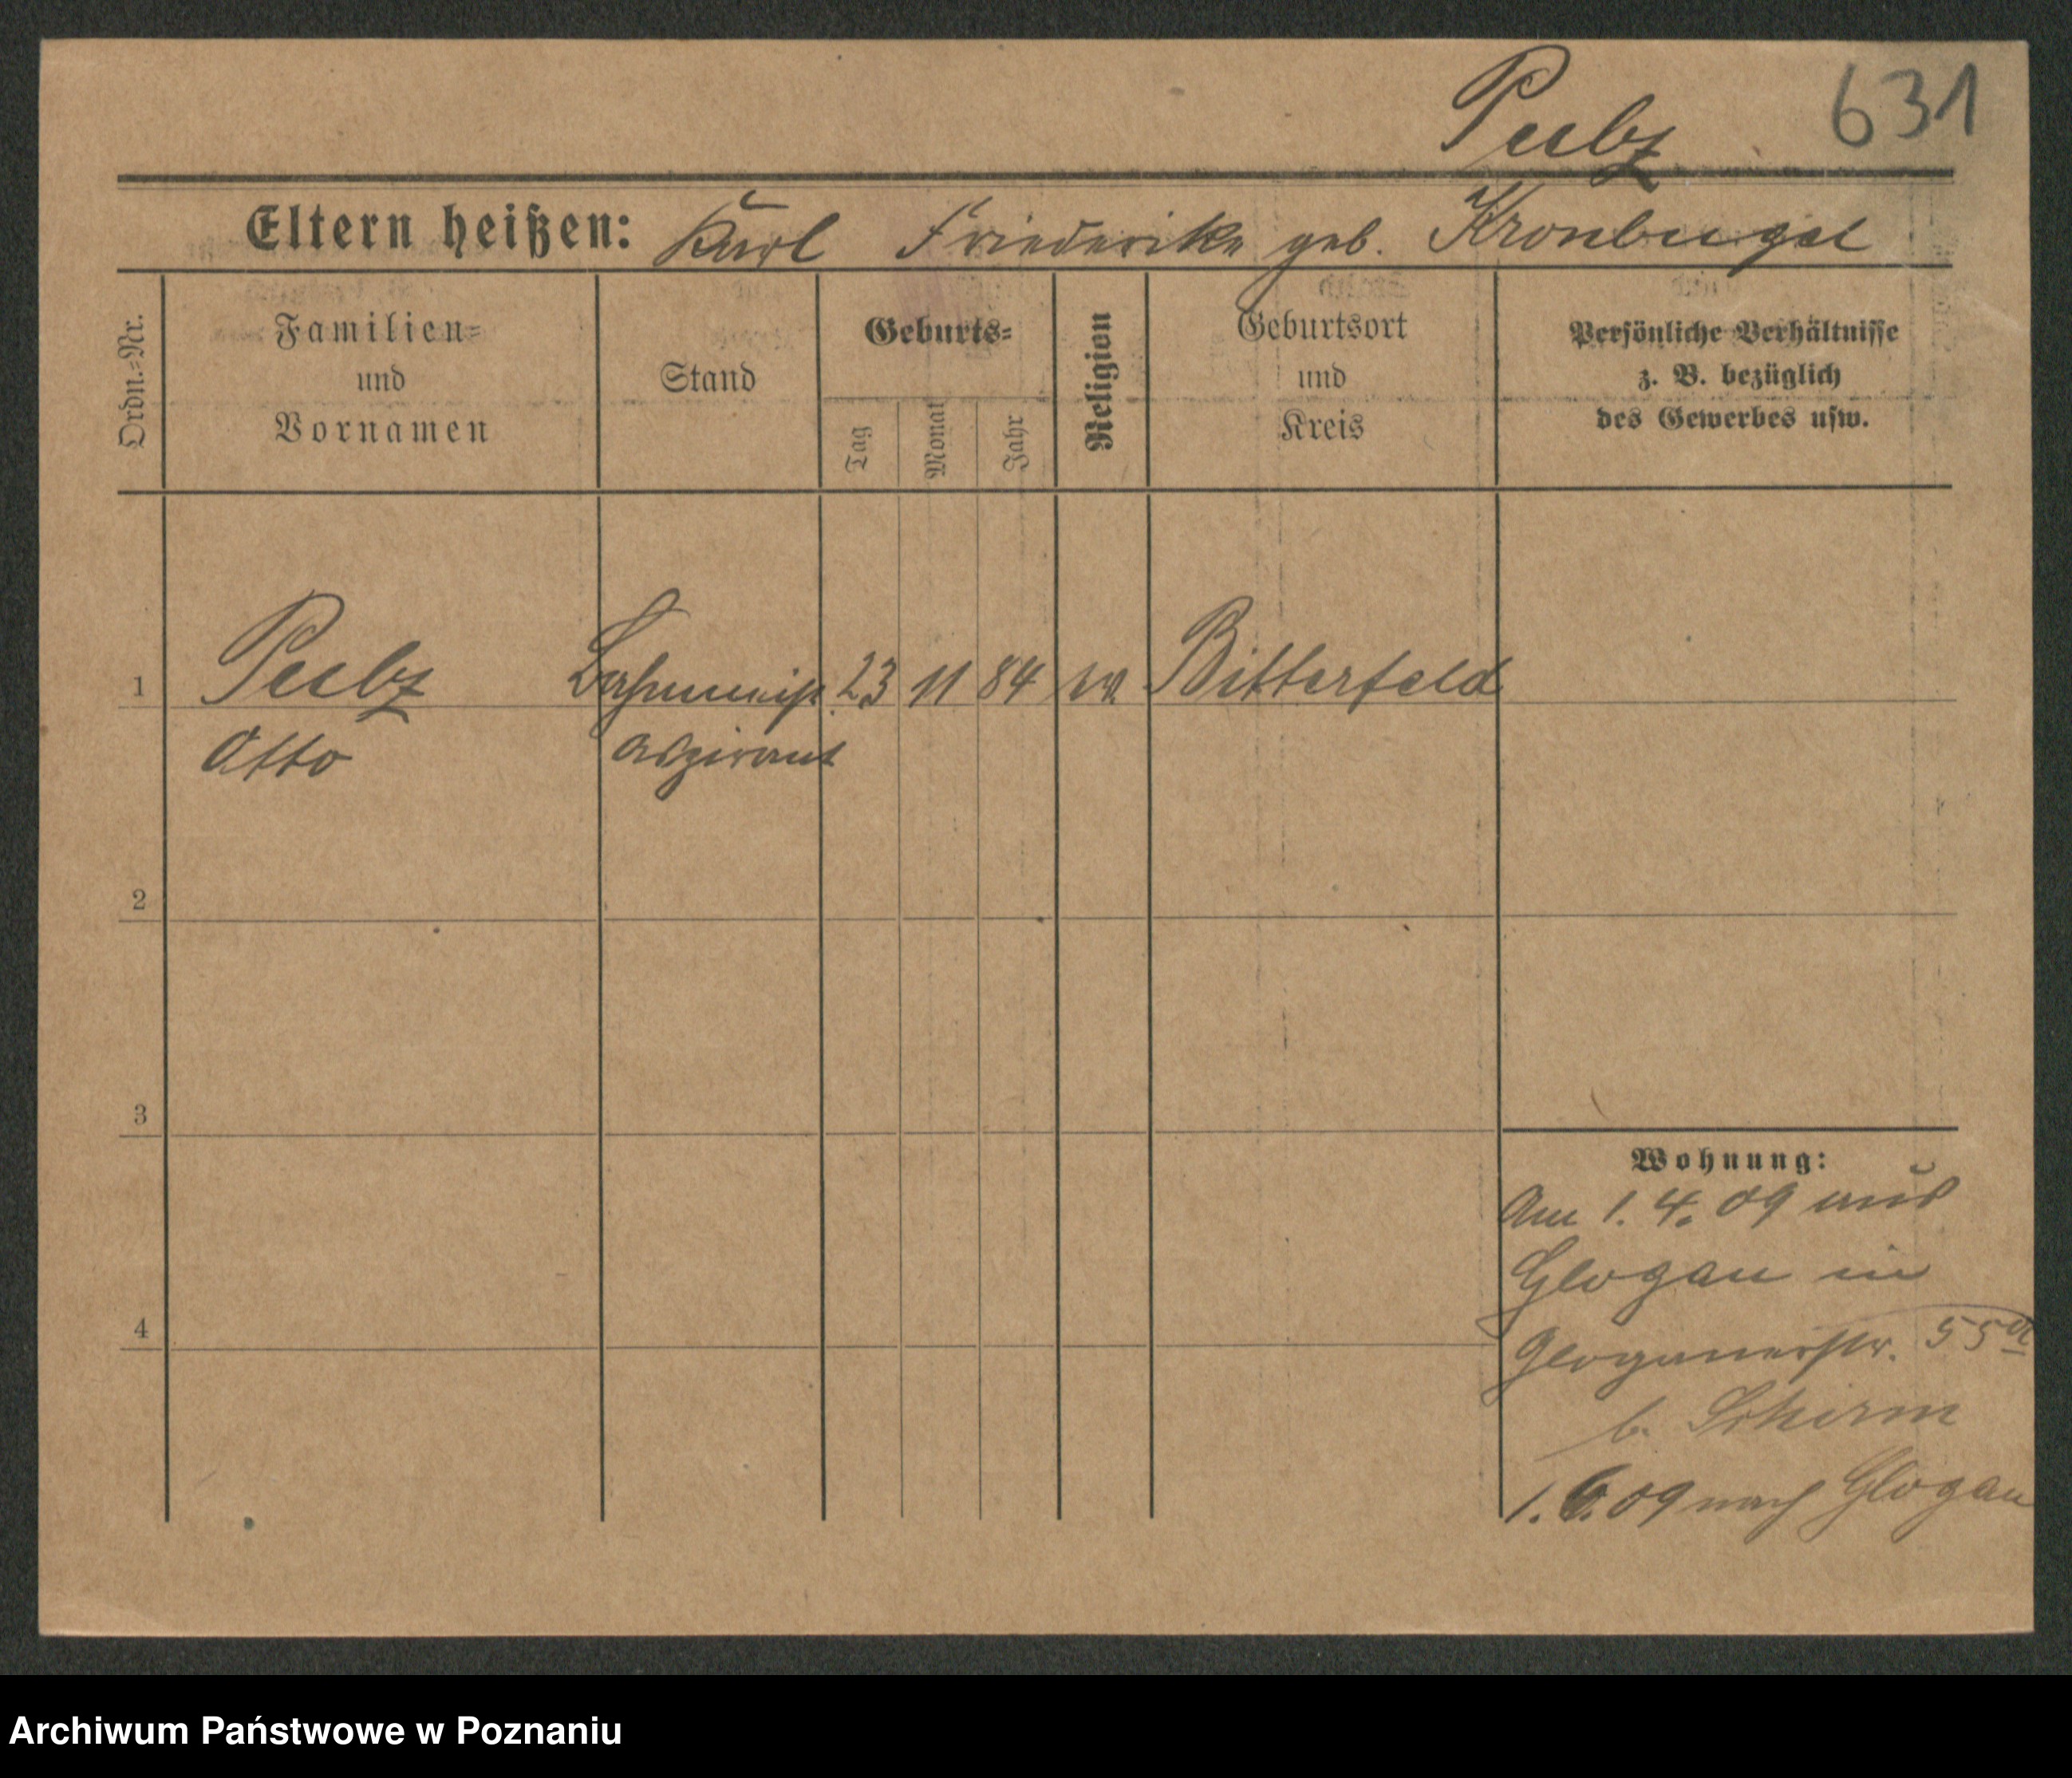 631
Eltern heißen: Karl Friederike geb. Kronbügel
Ordn.-Nr.
Familien-
und
Vornamen
Stand
Geburts-
Tag
Monat
Jahr
Religion
Geburtsort
und
Kreis
Persönliche Verhältnisse
z. B. bezüglich
des Gewerbes usw.
1
23 11 84 ev. Bitterfeld
Otto
Aspirant
2
3
4
Wohnung:
Am 1. 4. 09 aus
Glogau in
Glogauerstr. 55
b. Schirm
1. 6. 09 nach Glogau
Archiwum Państwowe w Poznaniu